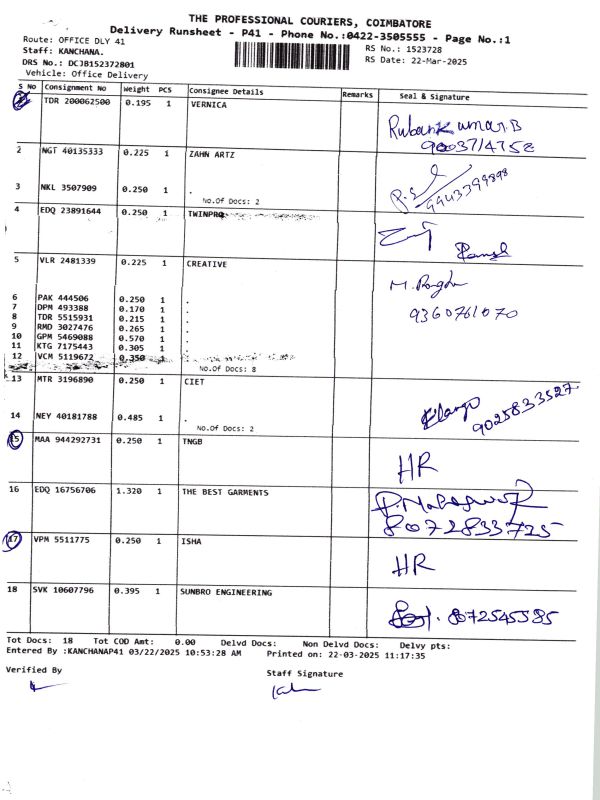 THE PROFESSIONAL COURIERS, COIMBATORE
Delivery Runsheet - P41 - Phone No.:0422-3505555 - Page No.:1
Route: OFFICE DLY 41
Staff: KANCHANA.
RS No.: 1523728
DRS No.: DCJB152372801
RS Date: 22-Mar-2025
Vehicle: Office Delivery
S No Consignment No Weight PCS Consignee Details Remarks Seal & Signature
TDR 200062500 0.195 1 VERNICA
RubanKumar.B
9003714752
2 NGT 40135333 0.225 1 ZAHN ARTZ
3 NKL 3507909 0.250 1 .
9943399898
No.Of Docs: 2
4 EDQ 23891644 0.250 1 TWINPRO
5 VLR 2481339 0.225 1 CREATIVE
9360761070
6 PAK 444506 0.250 1 .
7 DPM 493388 0.170 1 .
8 TDR 5515931 0.215 1 .
9 RMD 3027476 0.265 1 .
10 GPM 5469088 0.570 1 .
11 KTG 7175443 0.305 1 .
12 VCM 5119672 0.350 1 .
No.Of Docs: 8
13 MTR 3196890 0.250 1 CIET
14 NEY 40181788 0.485 1 .
9025833527
No.Of Docs: 2
15 MAA 944292731 0.250 1 TNGB
HR
16 EDQ 16756706 1.320 1 THE BEST GARMENTS
8072833725
17 VPM 5511775 0.250 1 ISHA
HR
18 SVK 10607796 0.395 1 SUNBRO ENGINEERING
872545585
Tot Docs: 18 Tot COD Amt: 0.00 Delvd Docs: Non Delvd Docs: Delvy pts:
Entered By :KANCHANAP41 03/22/2025 10:53:28 AM Printed on: 22-03-2025 11:17:35
Verified By
Staff Signature